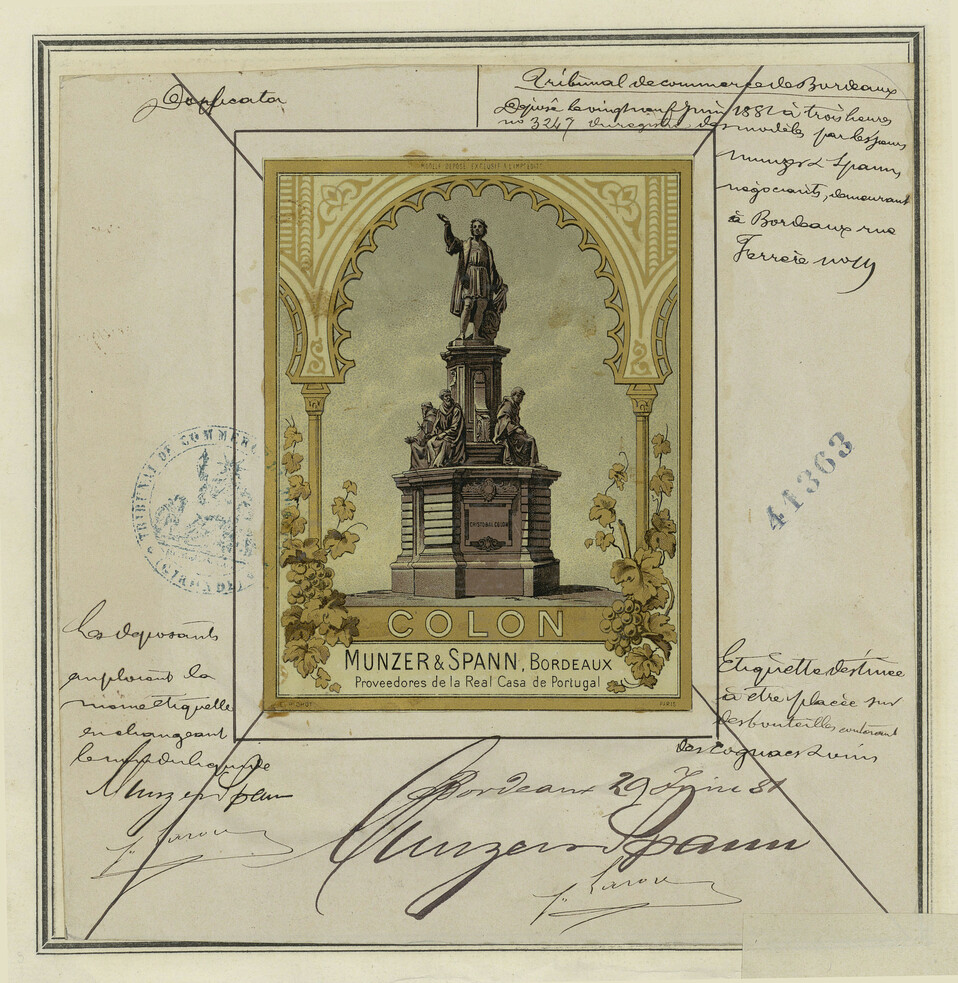 Duplicata
Tribunal de commerce de Bordeaux
Déposé le vingt neuf Juin 1881 à trois heures
no 3247 du registre des modèles par les sieurs
Munzer & Spann
négociants, demeurant
à Bordeaux rue
Ferrère no
MODÈLE DÉPOSÉ EXCLUSIF A L'IMPRIMEUR
CRISTOBAL COLON
TRIBUNAL DE COMMERCE
(GIRONDE)
41363
COLON
MUNZER & SPANN, BORDEAUX
Proveedores de la Real Casa de Portugal
PARIS
Les déposants
emploient la
même étiquette
en changeant
le nom du liquide
Munzer Spann
Etiquette destinée
à être placée sur
des bouteilles contenant
des Cognacs & vins
Bordeaux 29 Juin 81
Munzer Spann